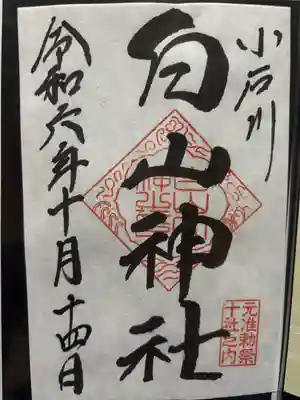 小石川
白山神社
令和六年十月十四日
元准勅祭
十社之内